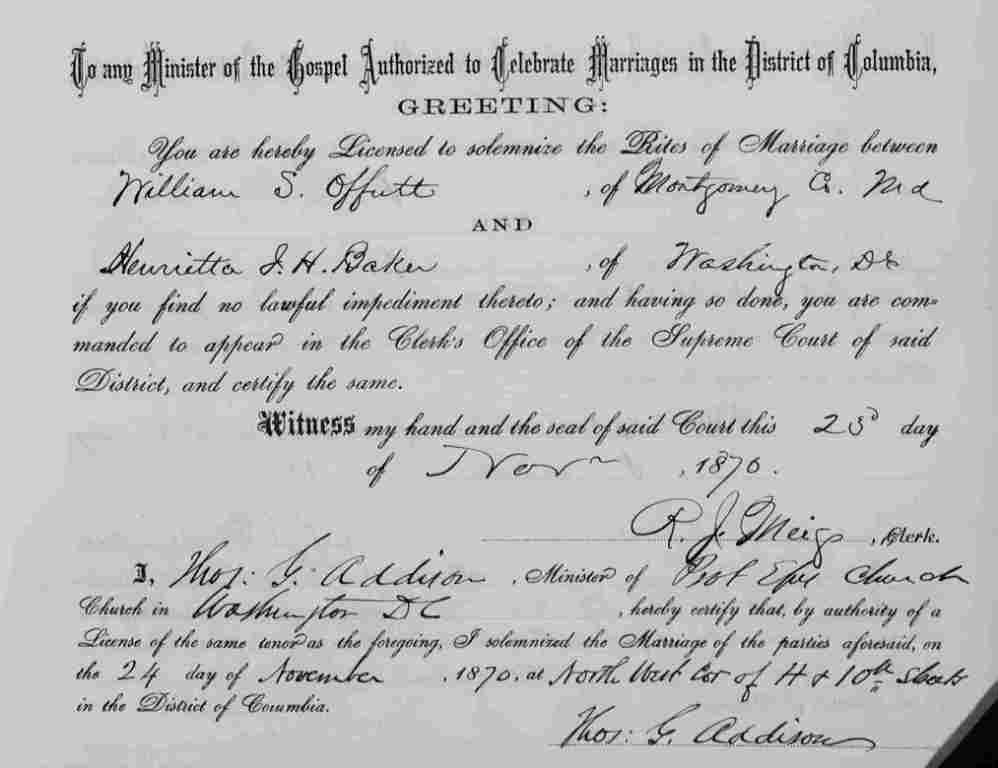 To any Minister of the Gospel Authorized to Celebrate Marriages in the District of Columbia,
GREETING:
You are hereby Licensed to solemnize the Rites of Marriage between
William S. Offutt , of Montgomery Co. Md
AND
Henrietta J. H. Baker , of Washington, DC
if you find no lawful impediment thereto; and having so done, you are com=
manded to appear in the Clerk's Office of the Supreme Court of said
District, and certify the same.
Witness my hand and the seal of said Court this 23d day
of Novr , 1870.
R. J. Meigs , Clerk.
I, Thos: G. Addison , Minister of Prot Epis Church
Church in Washington DC , hereby certify that, by authority of a
License of the same tenor as the foregoing, I solemnized the Marriage of the parties aforesaid, on
the 24 day of November , 1870, at North West Cor of H & 10th Streets
in the District of Columbia.
Thos: G. Addison